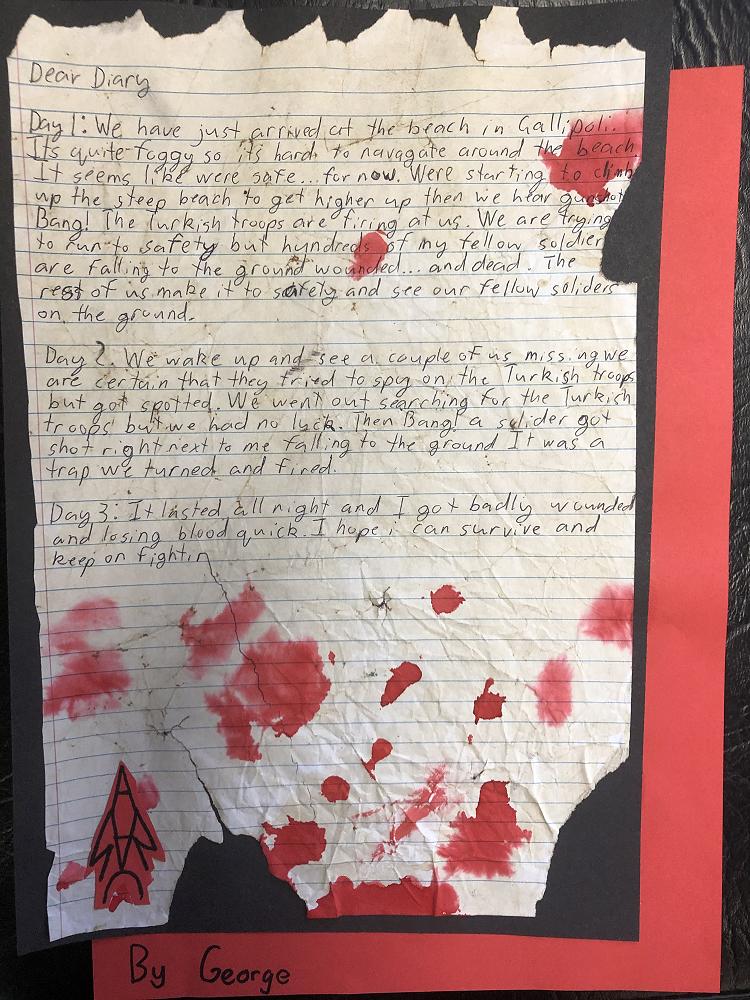 Dear Diary
Day 1: We have just arrived at the beach in Gallipoli.
Its quite foggy so its hard to navagate around the beach
It seems like were safe...for now. Were starting to climb
up the steep beach to get higher up then we hear gunshots
Bang! The Turkish troops are firing at us. We are trying
to run to safety but hundreds of my fellow soldier
are falling to the ground wounded... and dead. The
rest of us make it to safely and see our fellow soliders
on the ground.
Day 2. We wake up and see a couple of us missing we
are certain that they tried to spy on the Turkish troops
but got spotted. We went out searching for the Turkish
troops but we had no luck. Then Bang! a solider got
shot right next to me falling to the ground It was a
trap we turned and fired.
Day 3: It lasted all night and I got badly wounded
and losing blood quick. I hope i can survive and
keep on fightin
By George